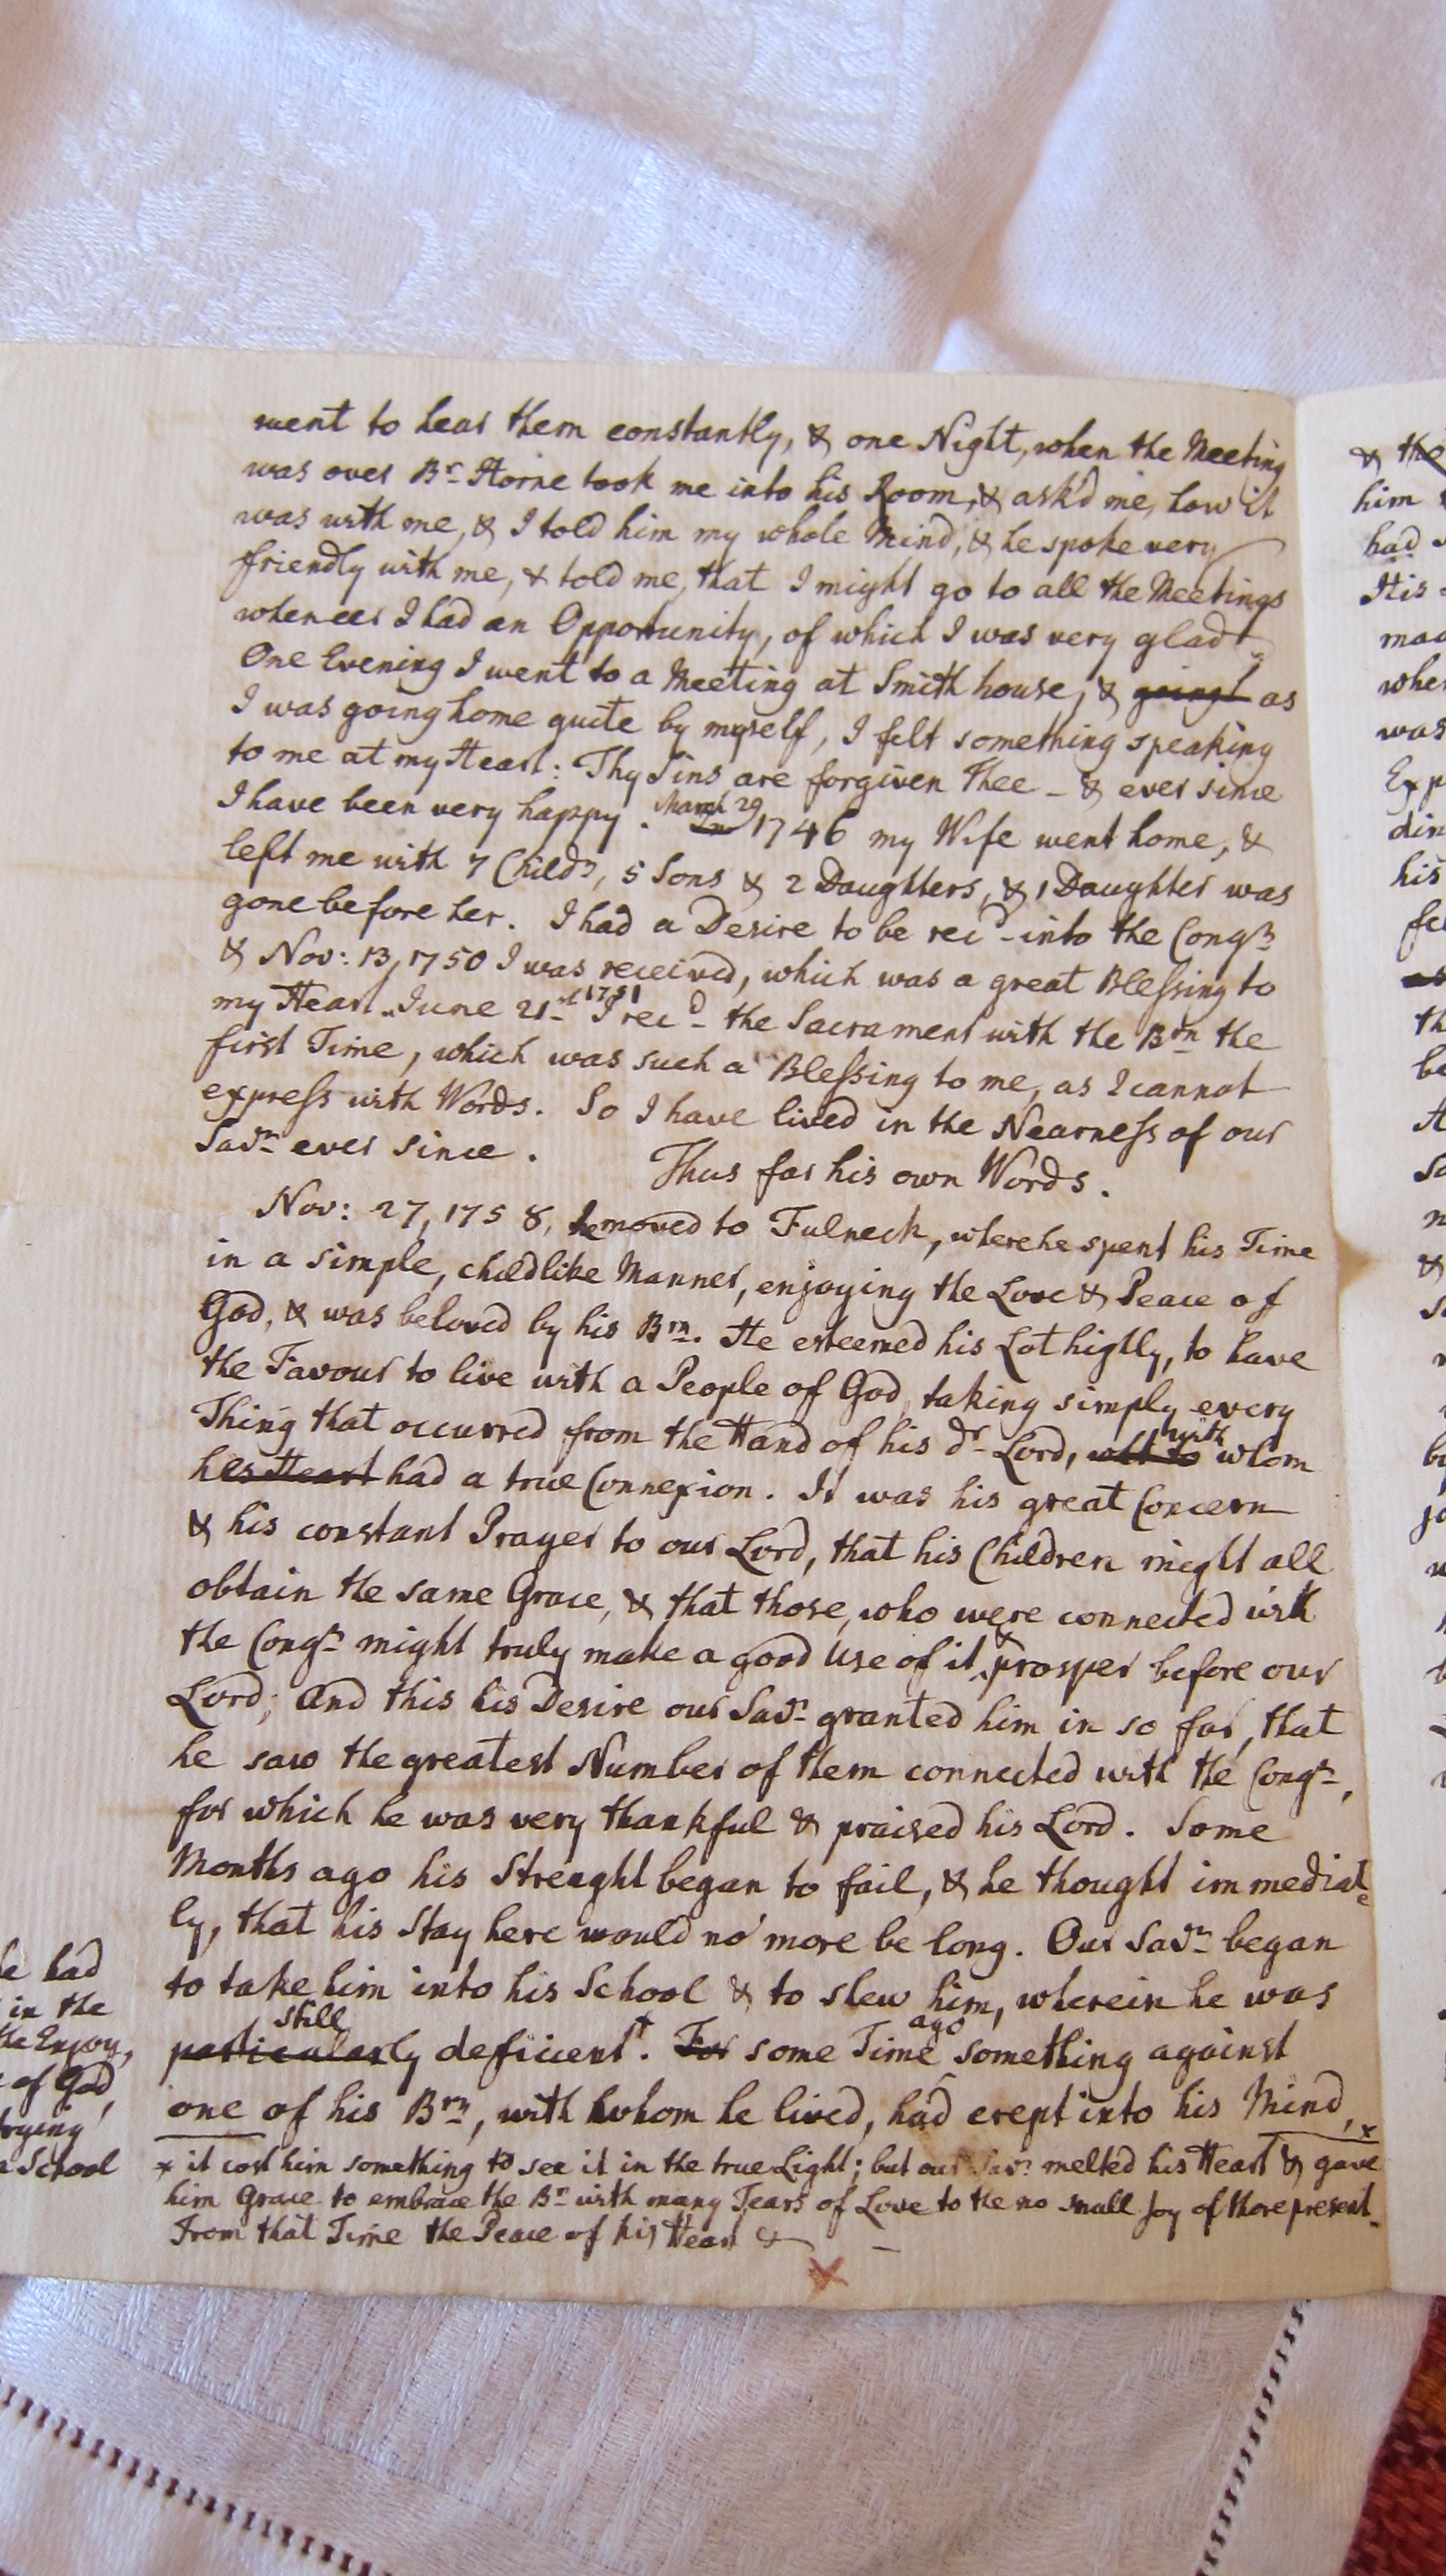 went to hear them constantly, & one Night, when the Meeting
was over Br. Horne took me into his Room, & ask'd me, how it
was with me, & I told him my whole Mind, & he spoke very
friendly with me, & told me, that I might go to all the Meetings
whenever I had an Opportunity, of which I was very glad.
One Evening I went to a Meeting at Smith house, & going as
I was going home quite by myself, I felt something speaking
to me at my Heart: Thy Sins are forgiven Thee – & ever since
I have been very happy. March 29 In 1746 my Wife went home, &
left me with 7 Childn, 5 Sons & 2 Daughters, & 1 Daughter was
gone before her. I had a Desire to be recd into the Congn
& Nov: 13, 1750 I was received, which was a great Blessing to
my Heart. June 21st 1751 I recd the Sacrament with the Brn the
first Time, which was such a Blessing to me, as I cannot
express with Words. So I have lived in the Nearness of our
Savr ever since.
Thus far his own Words.
Nov: 27, 1758, he moved to Fulneck, where he spent his Time
in a simple, childlike Manner, enjoying the Love & Peace of
God, & was beloved by his Brn. He esteemed his Lot highly, to have
the Favour to live with a People of God, taking simply every
Thing that occurred from the Hand of his dr Lord, with whom
hes Heart had a true Connexion. It was his great Concern
& his constant Prayer to our Lord, that his Children might all
obtain the same Grace, & that those, who were connected with
the Congn might truly make a good Use of it, & prosper before our
Lord; And this his Desire our Savr granted him in so far, that
he saw the greatest Number of them connected with the Congn,
for which he was very thankful & praised his Lord. Some
Months ago his Strenght began to fail, & he thought immediate
ly, that his Stay here would no more be long. Our Savr began
to take him into his School & to shew him, wherein he was
still
particularly deficient. + For some Time ago something against
one of his Brn, with whom he lived, had crept into his Mind, x
x it cost him something to see it in the true Light; but our Savr melted his Heart & gave
him Grace to embrace the Br with many Tears of Love to the no small Joy of those present.
From that Time the Peace of his Heart & –
he had
in the
the Enjoy,
of God,
School
& the
him
had
His
mad
when
was
Exp
din
his